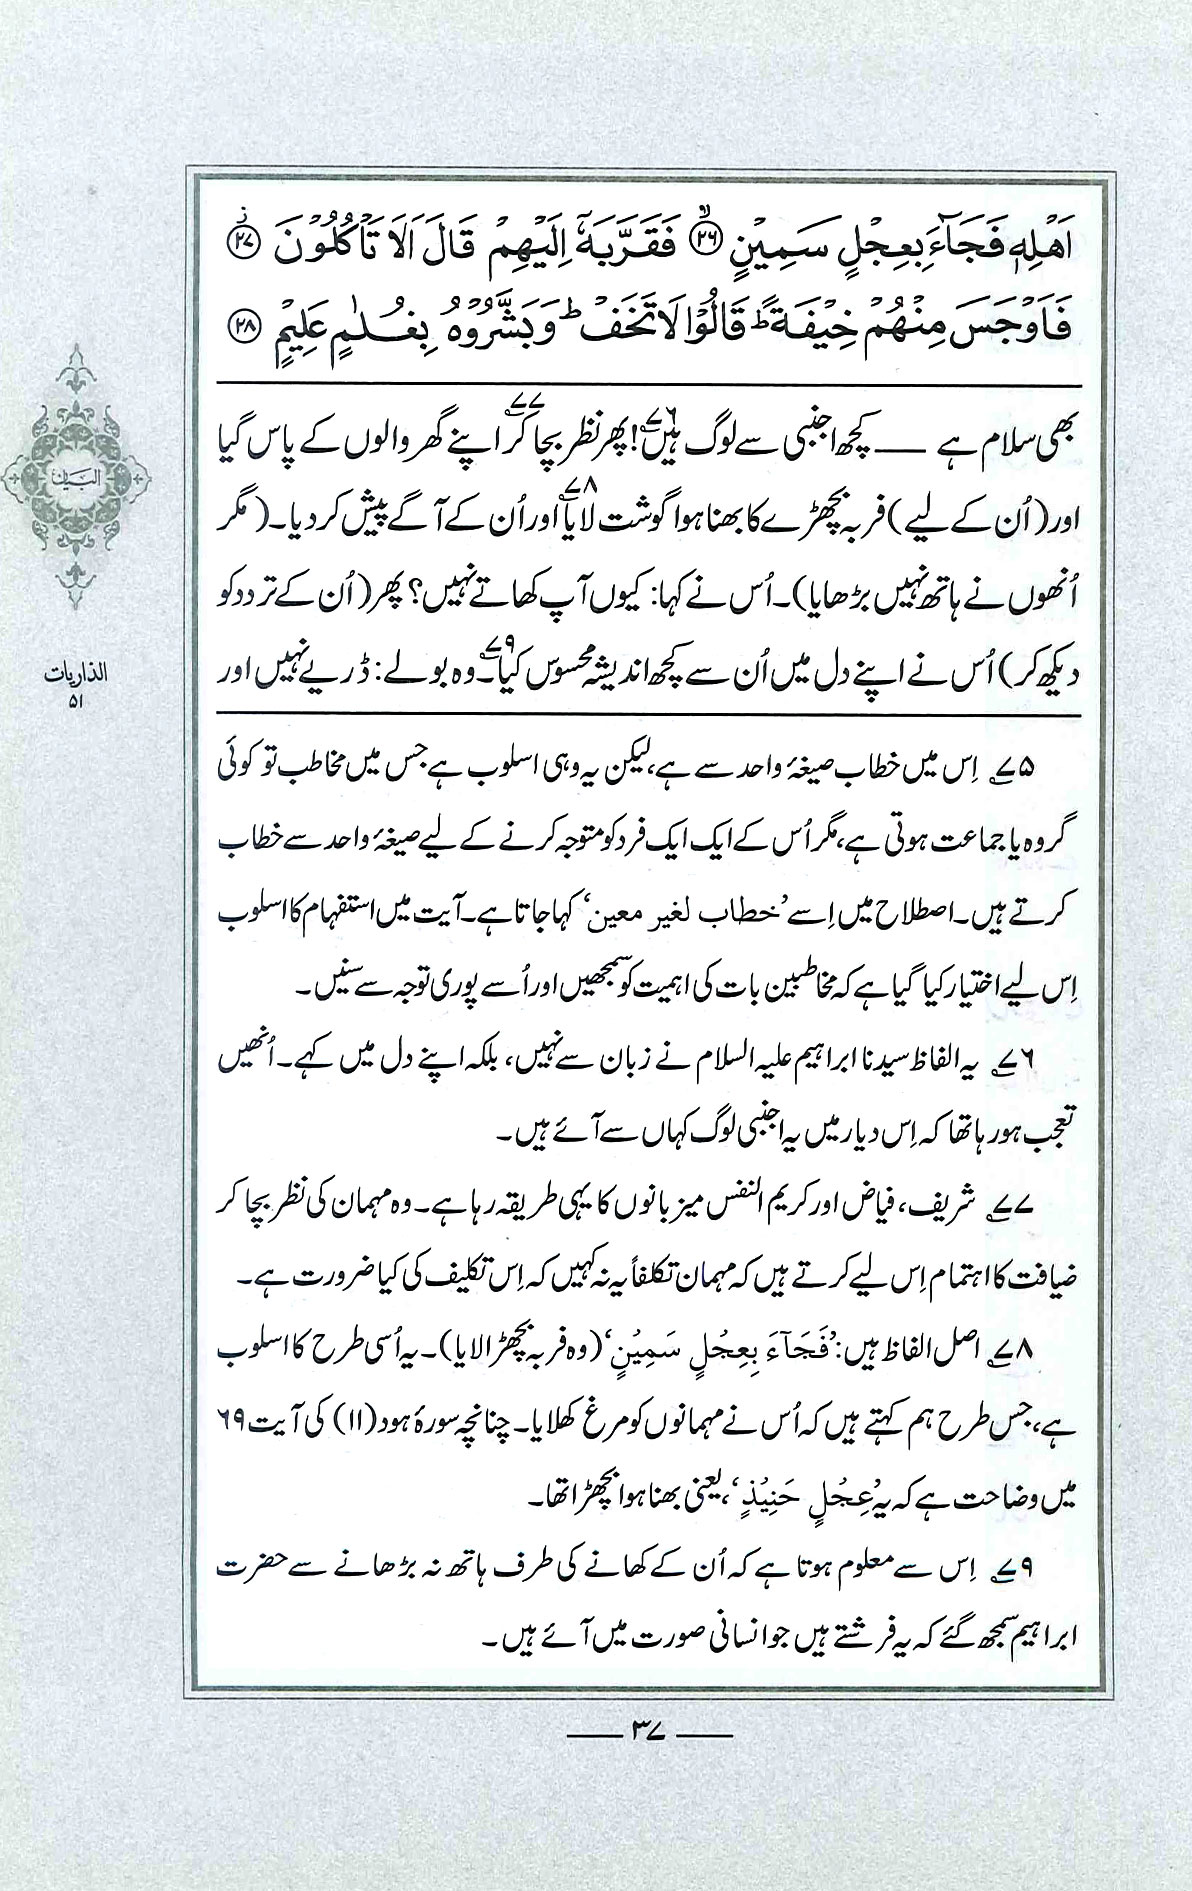 اَهْلِهٖ فَجَآءَ بِعِجْلٍ سَمِيْنٍ ﴿۲۶﴾ۙ فَقَرَّبَهٗٓ اِلَيْهِمْ قَالَ اَلَا تَاْكُلُوْنَ ﴿۲۷﴾ؗ
فَاَوْجَسَ مِنْهُمْ خِيْفَةًؕ قَالُوْا لَا تَخَفْؕ وَبَشَّرُوْهُ بِغُلٰمٍ عَلِيْمٍ ﴿۲۸﴾
بھی سلام ہے —— کچھ اجنبی سے لوگ ہیں۷۶؎! پھر نظر بچا کر۷۷؎ اپنے گھر والوں کے پاس گیا
اور (اُن کے لیے) فربہ بچھڑے کا بھنا ہوا گوشت لایا۷۸؎ اور اُن کے آگے پیش کر دیا۔ (مگر
اُنھوں نے ہاتھ نہیں بڑھایا)۔ اُس نے کہا: کیوں آپ کھاتے نہیں؟ پھر (اُن کے تردد کو
دیکھ کر) اُس نے اپنے دل میں اُن سے کچھ اندیشہ محسوس کیا۷۹؎۔ وہ بولے: ڈریے نہیں اور
۷۵؎ اِس میں خطاب صیغۂ واحد سے ہے، لیکن یہ وہی اسلوب ہے جس میں مخاطب تو کوئی
گروہ یا جماعت ہوتی ہے، مگر اُس کے ایک ایک فرد کو متوجہ کرنے کے لیے صیغۂ واحد سے خطاب
کرتے ہیں۔ اصطلاح میں اِسے ’خطاب لغیر معین‘ کہا جاتا ہے۔ آیت میں استفہام کا اسلوب
اِس لیے اختیار کیا گیا ہے کہ مخاطبین بات کی اہمیت کو سمجھیں اور اُسے پوری توجہ سے سنیں۔
۷۶؎ یہ الفاظ سیدنا ابراہیم علیہ السلام نے زبان سے نہیں، بلکہ اپنے دل میں کہے۔ اُنھیں
تعجب ہو رہا تھا کہ اِس دیار میں یہ اجنبی لوگ کہاں سے آئے ہیں۔
۷۷؎ شریف، فیاض اور کریم النفس میزبانوں کا یہی طریقہ رہا ہے۔ وہ مہمان کی نظر بچا کر
ضیافت کا اہتمام اِس لیے کرتے ہیں کہ مہمان تکلفاً یہ نہ کہیں کہ اِس تکلیف کی کیا ضرورت ہے۔
۷۸؎ اصل الفاظ ہیں: ’فَجَآءَ بِعِجْلٍ سَمِيْنٍ‘ (وہ فربہ بچھڑا لایا)۔ یہ اُسی طرح کا اسلوب
ہے، جس طرح ہم کہتے ہیں کہ اُس نے مہمانوں کو مرغ کھلایا۔ چنانچہ سورۂ ہود (۱۱) کی آیت ۶۹
میں وضاحت ہے کہ یہ ’عِجْلٍ حَنِيْذٍ‘، یعنی بھنا ہوا بچھڑا تھا۔
۷۹؎ اِس سے معلوم ہوتا ہے کہ اُن کے کھانے کی طرف ہاتھ نہ بڑھانے سے حضرت
ابراہیم سمجھ گئے کہ یہ فرشتے ہیں جو انسانی صورت میں آئے ہیں۔
البیان
الذاریات
۵۱
—— ۳۷ ——